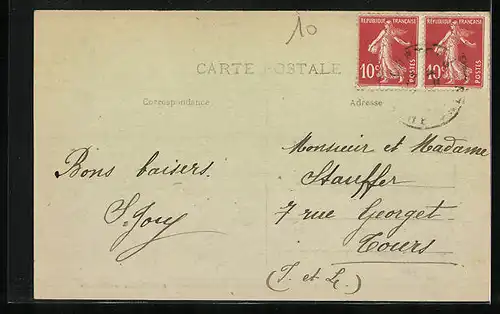 10
RÉPUBLIQUE FRANÇAISE
10c
POSTES
RÉPUBLIQUE FRANÇAISE
10c
POSTES
CARTE POSTALE
Correspondance
Adresse
Bons baisers.
Monsieur et Madame
Stauffer
7 rue Georget
Tours
(I. et L.)